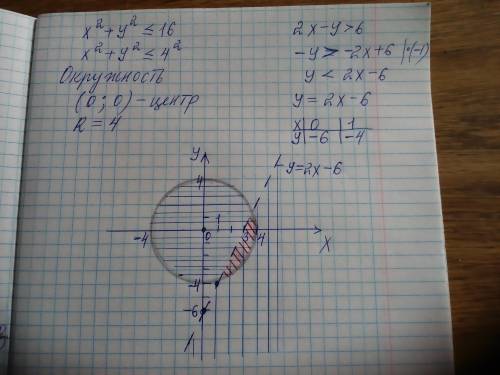 x² + y² ≤ 16
x² + y² ≤ 4²
Окружность
(0; 0) - центр
R = 4
2x - y > 6
-y > -2x + 6 | · (-1)
y < 2x - 6
y = 2x - 6
x | 0 | 1
y | -6 | -4
y
y = 2x - 6
4
1
-4
0
3
4
x
-4
-6